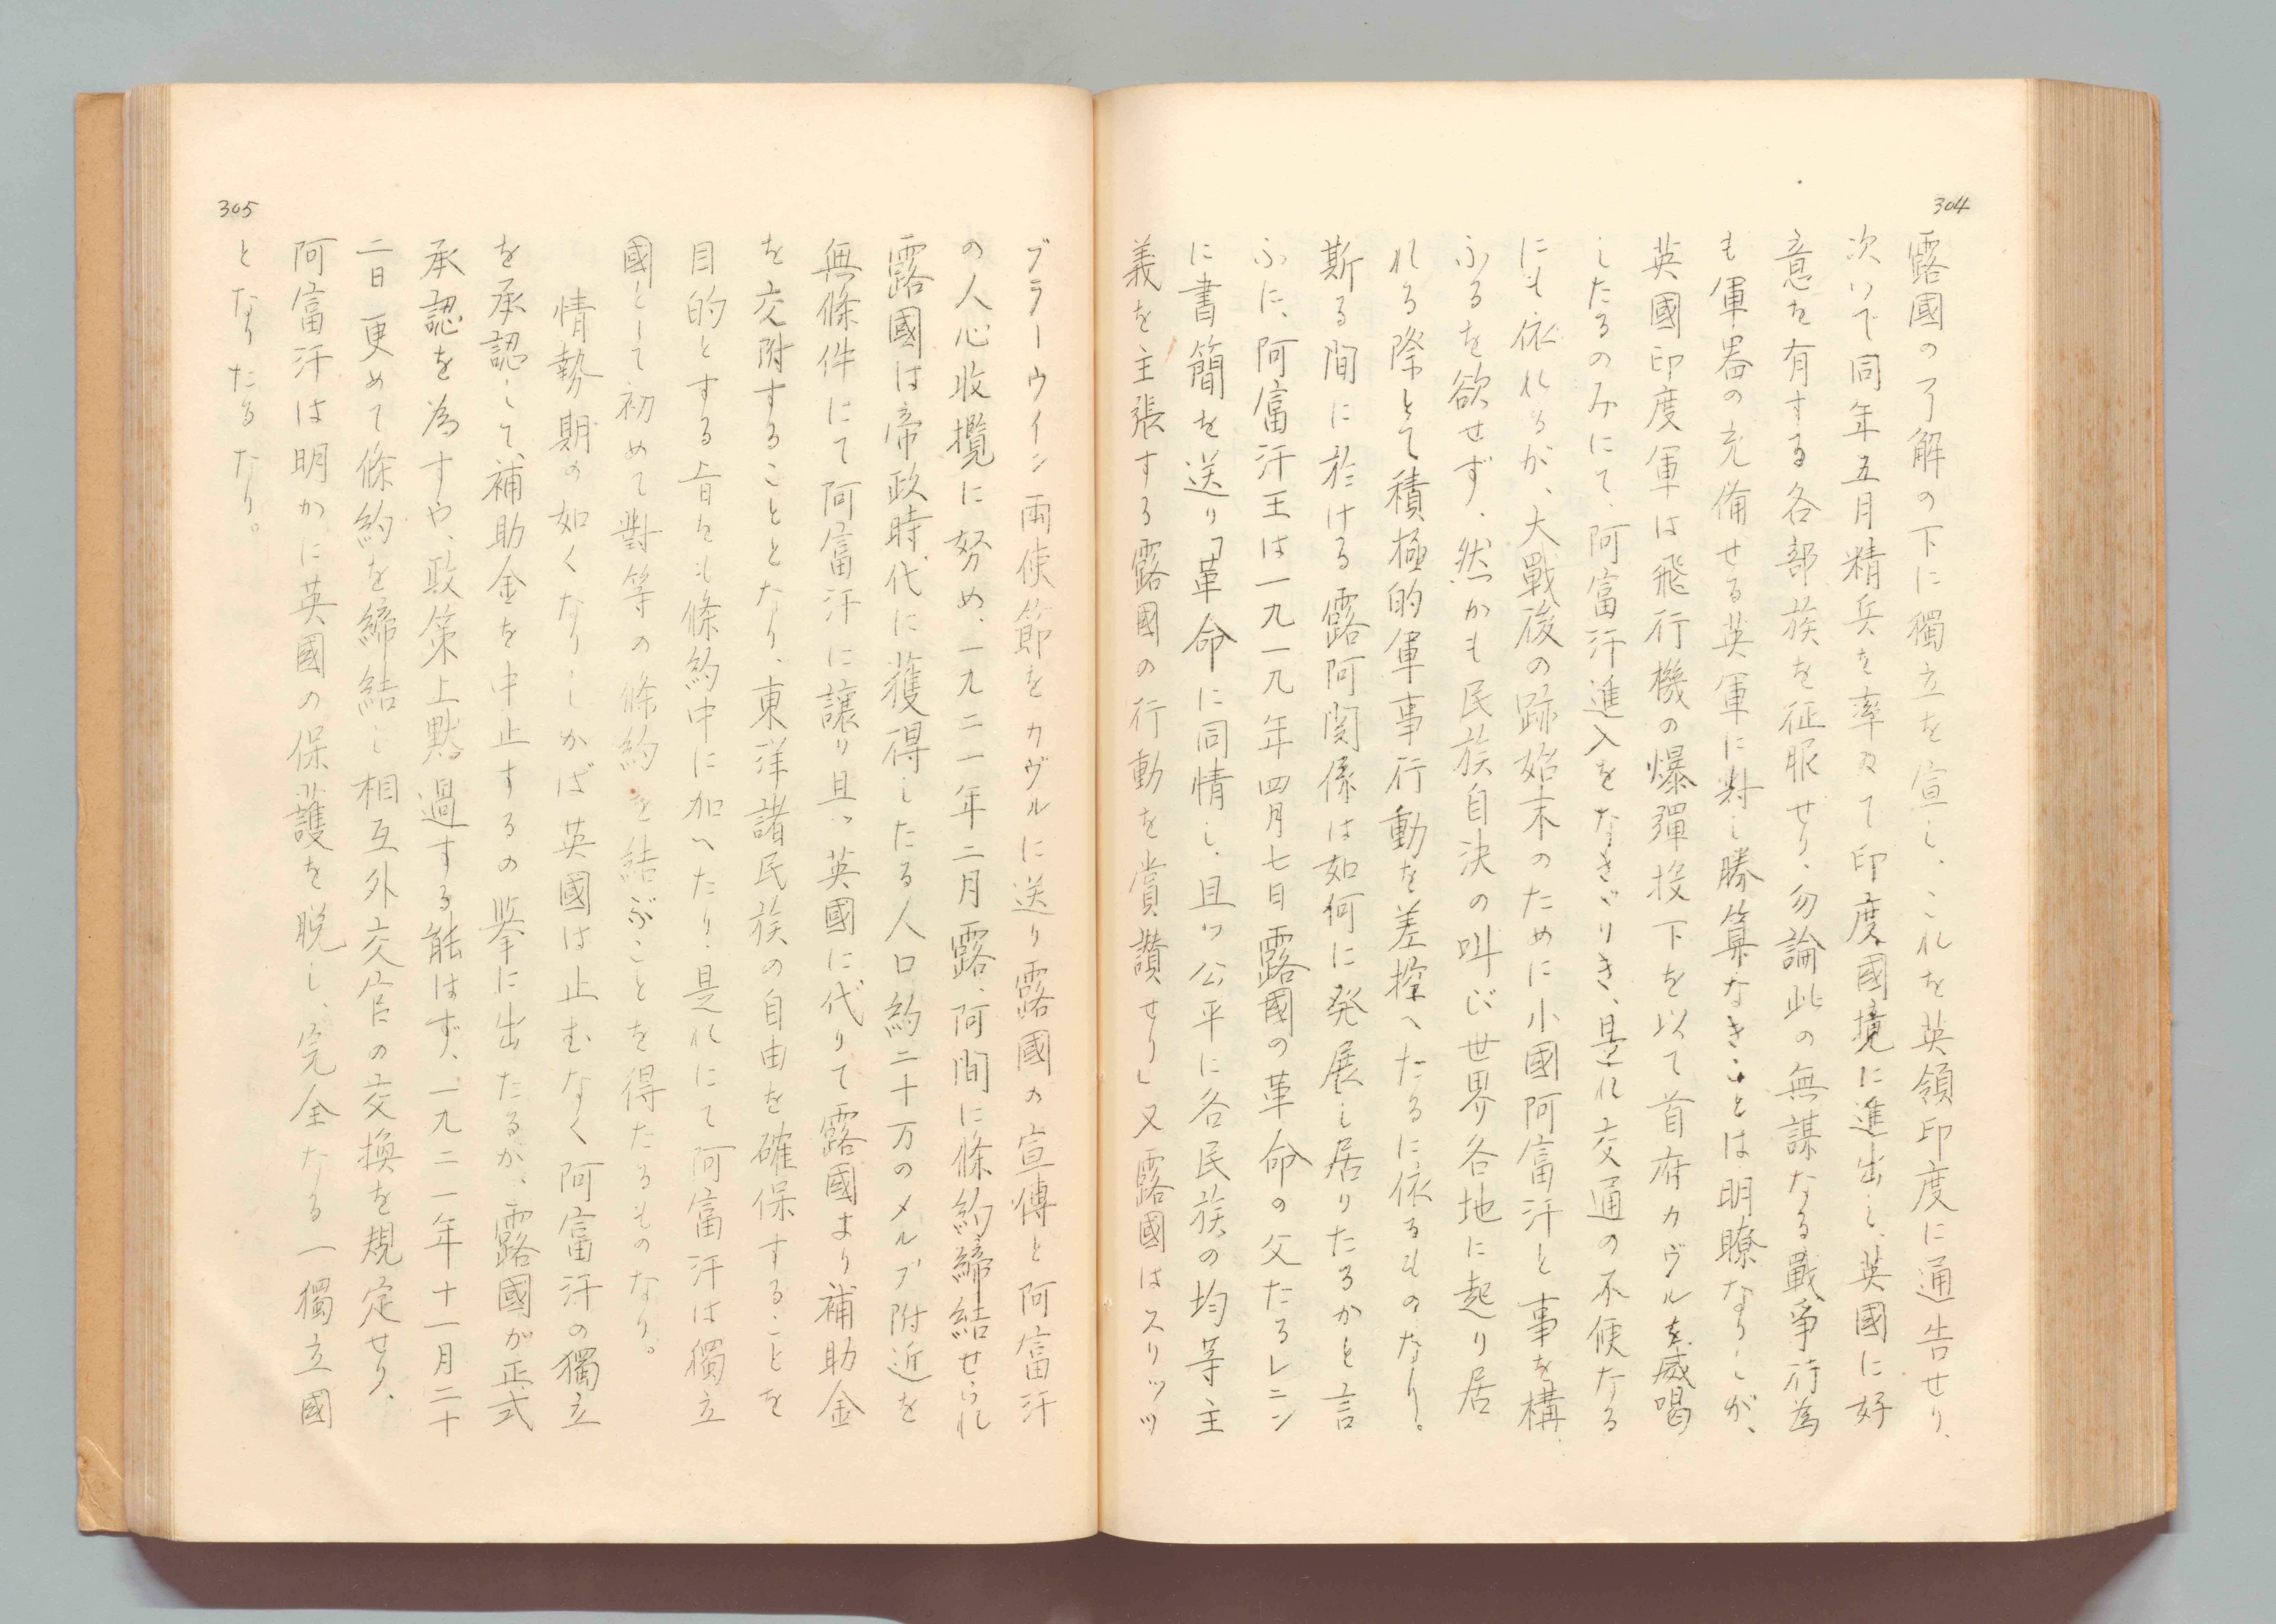 304
露國の了解の下に獨立を宣し、これを英領印度に通告せり、
次いで同年五月精兵を率ゐて印度國境に進出し、英國に好
意を有する各部族を征服せり、勿論此の無謀なる戰爭行為
も軍器の充備せる英軍に對し勝算なきことは明瞭なりしが、
英國印度軍は飛行機の爆彈投下を以て首府カヴルを威喝
したるのみにて、阿富汗進入をなさざりき、是れ交通の不便なる
にも依れるが、大戰後の跡始末のために小國阿富汗と事を構
ふるを欲せず、然かも民族自決の叫び世界各地に起り居
れる際とて積極的軍事行動を差控へたるに依るものなり。
斯る間に於ける露阿関係は如何に発展し居りたるかと言
ふに、阿富汗王は一九一九年四月七日露國の革命の父たるレニン
に書簡を送り「革命に同情し、且つ公平に各民族の均等主
義を主張する露國の行動を賞讃せり」又露國はスリッツ
ブラーウイン両使節をカヴルに送り露國の宣傳と阿富汗
の人心收攬に努め、一九二一年二月露、阿間に條約締結せられ
露國は帝政時代に獲得したる人口約二十万のメルブ附近を
無條件にて阿富汗に讓り且つ英國に代りて露國より補助金
を交附することとなり、東洋諸民族の自由を確保することを
目的とする旨をも條約中に加へたり、是れにて阿富汗は獨立
國として初めて對等の條約を結ぶことを得たるものなり。
情勢期の如くなりしかば英國は止むなく阿富汗の獨立
を承認して、補助金を中止するの挙に出たるが、露國が正式
承認を為すや、政策上黙過する能はず、一九二一年十一月二十
二日更めて條約を締結し相互外交官の交換を規定せり、
阿富汗は明かに英國の保護を脱し、完全なる一獨立國
となりたるなり。
305